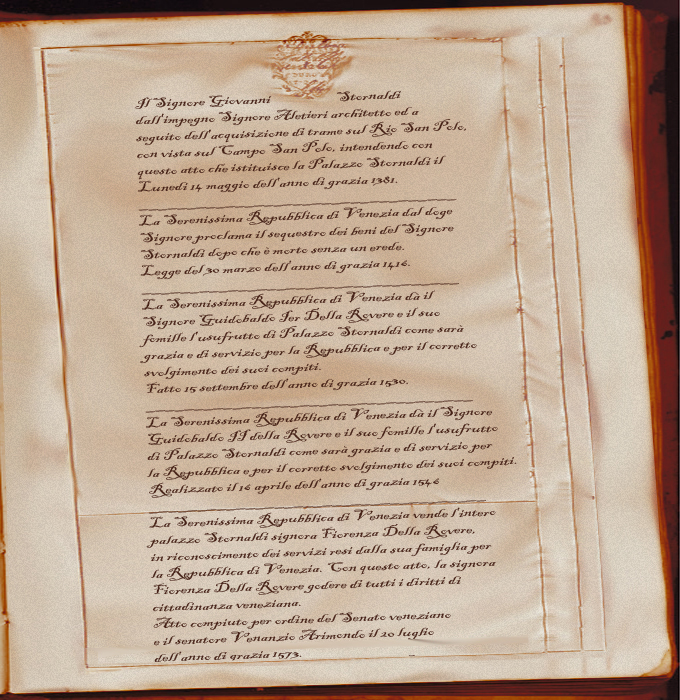 Il Signore Giovanni Stornaldi
dall'impegno Signore Aletieri architetto ed a
seguito dell'acquisizione di trame sul Rio San Polo,
con vista sul Campo San Polo, intendendo con
questo atto che istituisce la Palazzo Stornaldi il
Lunedì 14 maggio dell'anno di grazia 1381.
La Serenissima Repubblica di Venezia dal doge
Signore proclama il sequestro dei beni del Signore
Stornaldi dopo che è morto senza un erede.
Legge del 30 marzo dell'anno di grazia 1416.
La Serenissima Repubblica di Venezia dà il
Signore Guidobaldo Ier Della Rovere e il suo
fomille l'usufrutto di Palazzo Stornaldi come sarà
grazia e di servizio per la Repubblica e per il corretto
svolgimento dei suoi compiti.
Fatto 15 settembre dell'anno di grazia 1530.
La Serenissima Repubblica di Venezia dà il Signore
Guidobaldo II della Rovere e il suo fomille l'usufrutto
di Palazzo Stornaldi come sarà grazia e di servizio per
la Repubblica e per il corretto svolgimento dei suoi compiti.
Realizzato il 16 aprile dell'anno di grazia 1546
La Serenissima Repubblica di Venezia vende l'intero
palazzo Stornaldi signora Fiorenza Della Rovere,
in riconoscimento dei servizi resi dalla sua famiglia per
la Repubblica di Venezia. Con questo atto, la signora
Fiorenza Della Rovere godere di tutti i diritti di
cittadinanza veneziana.
Atto compiuto per ordine del Senato veneziano
e il senatore Venanzio Arimondo il 20 luglio
dell'anno di grazia 1573.